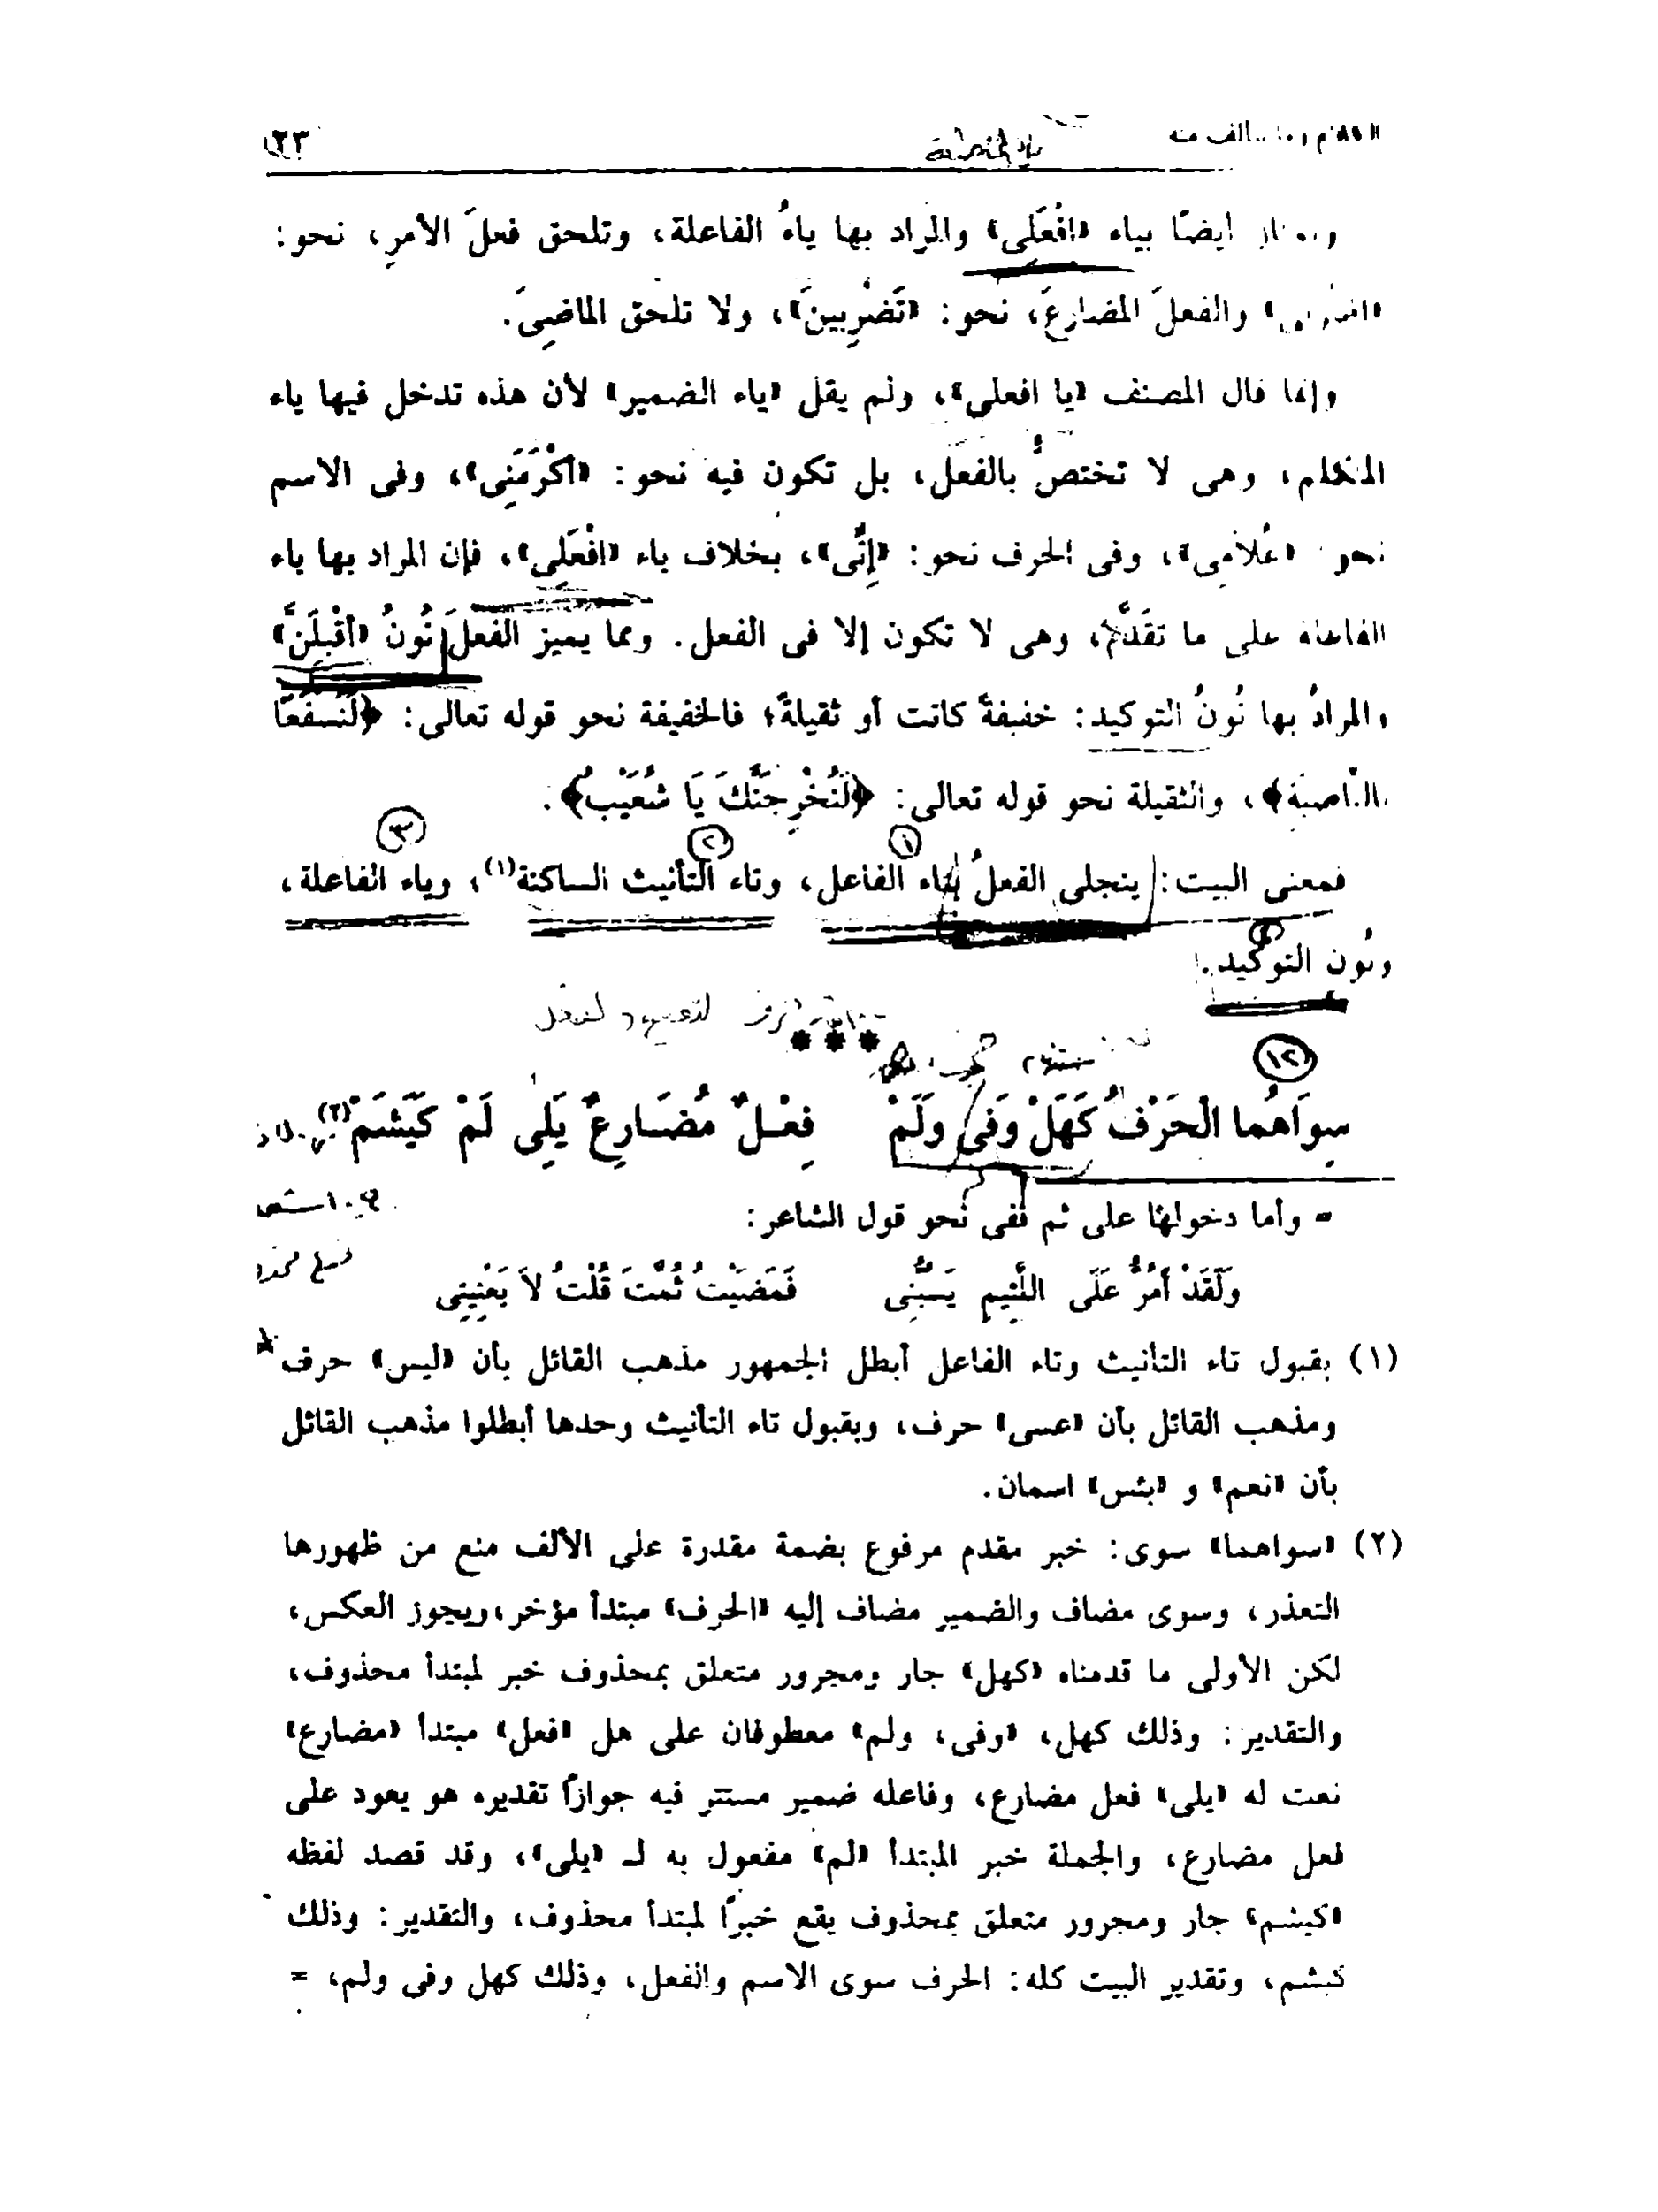 ٢٣
أيضًا بياء «افْعَلِى» والمراد بها ياءُ الفاعلة، وتلحق فعلَ الأمرِ، نحو:
والفعلَ المضارعَ، نحو: «تَضْرِبينَ»، ولا تلحق الماضِىَ.
وإنما قال المصنف «يا افعلى»، ولم يقل «ياء الضمير» لأن هذه تدخل فيها ياء
المتكلم، وهى لا تختصُّ بالفعل، بل تكون فيه نحو: «أكْرَمَنِى»، وفى الاسم
نحو «غُلاَمِى»، وفى الحرف نحو: «إِنِّى»، بخلاف ياء «افْعَلِى»، فإن المراد بها ياء
الفاعلة على ما تقَدَّم، وهى لا تكون إلا فى الفعل. ومما يميز الفعلَ نُونُ «أقْبِلَنَّ»
والمرادُ بها نُونُ التوكيد: خفيفةً كانت أو ثقيلةً؛ فالخفيفة نحو قوله تعالى: ﴿لَنَسْفَعًا
بالنَّاصيَة﴾، والثقيلة نحو قوله تعالى: ﴿لَنُخْرِجَنَّكَ يَا شُعَيْبُ﴾.
٣ ٢ ١
فمعنى البيت: ينجلى الفعلُ بتاء الفاعل، وتاء التأنيث الساكنة(١)، وياء الفاعلة،
ونُون التوكيد.
***
١٢
سِوَاهُما الْحَرْفُ كَهَلْ وَفِى وَلَمْ فِعْلٌ مُضَارِعٌ يَلِى لَمْ كَيَشَمْ(٢)
= وأما دخولها على ثم ففى نحو قول الشاعر:
وَلَقَدْ أَمُرُّ عَلَى اللَّئِيمِ يَسُبُّنِى فَمَضَيْتُ ثُمَّتَ قُلْتُ لاَ يَعْنِينِى
(١) بقبول تاء التأنيث وتاء الفاعل أبطل الجمهور مذهب القائل بأن «ليس» حرف
ومذهب القائل بأن «عسى» حرف، وبقبول تاء التأنيث وحدها أبطلوا مذهب القائل
بأن «نعم» و «بئس» اسمان.
(٢) «سواهما» سوى: خبر مقدم مرفوع بضمة مقدرة على الألف منع من ظهورها
التعذر، وسوى مضاف والضمير مضاف إليه «الحرف» مبتدأ مؤخر، ويجوز العكس،
لكن الأولى ما قدمناه «كهل» جار ومجرور متعلق بمحذوف خبر لمبتدأ محذوف،
والتقدير: وذلك كهل، «وفى، ولم» معطوفان على هل «فعل» مبتدأ «مضارع»
نعت له «يلى» فعل مضارع، وفاعله ضمير مستتر فيه جوازًا تقديره هو يعود على
فعل مضارع، والجملة خبر المبتدأ «لم» مفعول به لـ «يلى»، وقد قصد لفظه
«كيشم» جار ومجرور متعلق بمحذوف يقع خبرًا لمبتدأ محذوف، والتقدير: وذلك
كيشم، وتقدير البيت كله: الحرف سوى الاسم والفعل، وذلك كهل وفى ولم، =